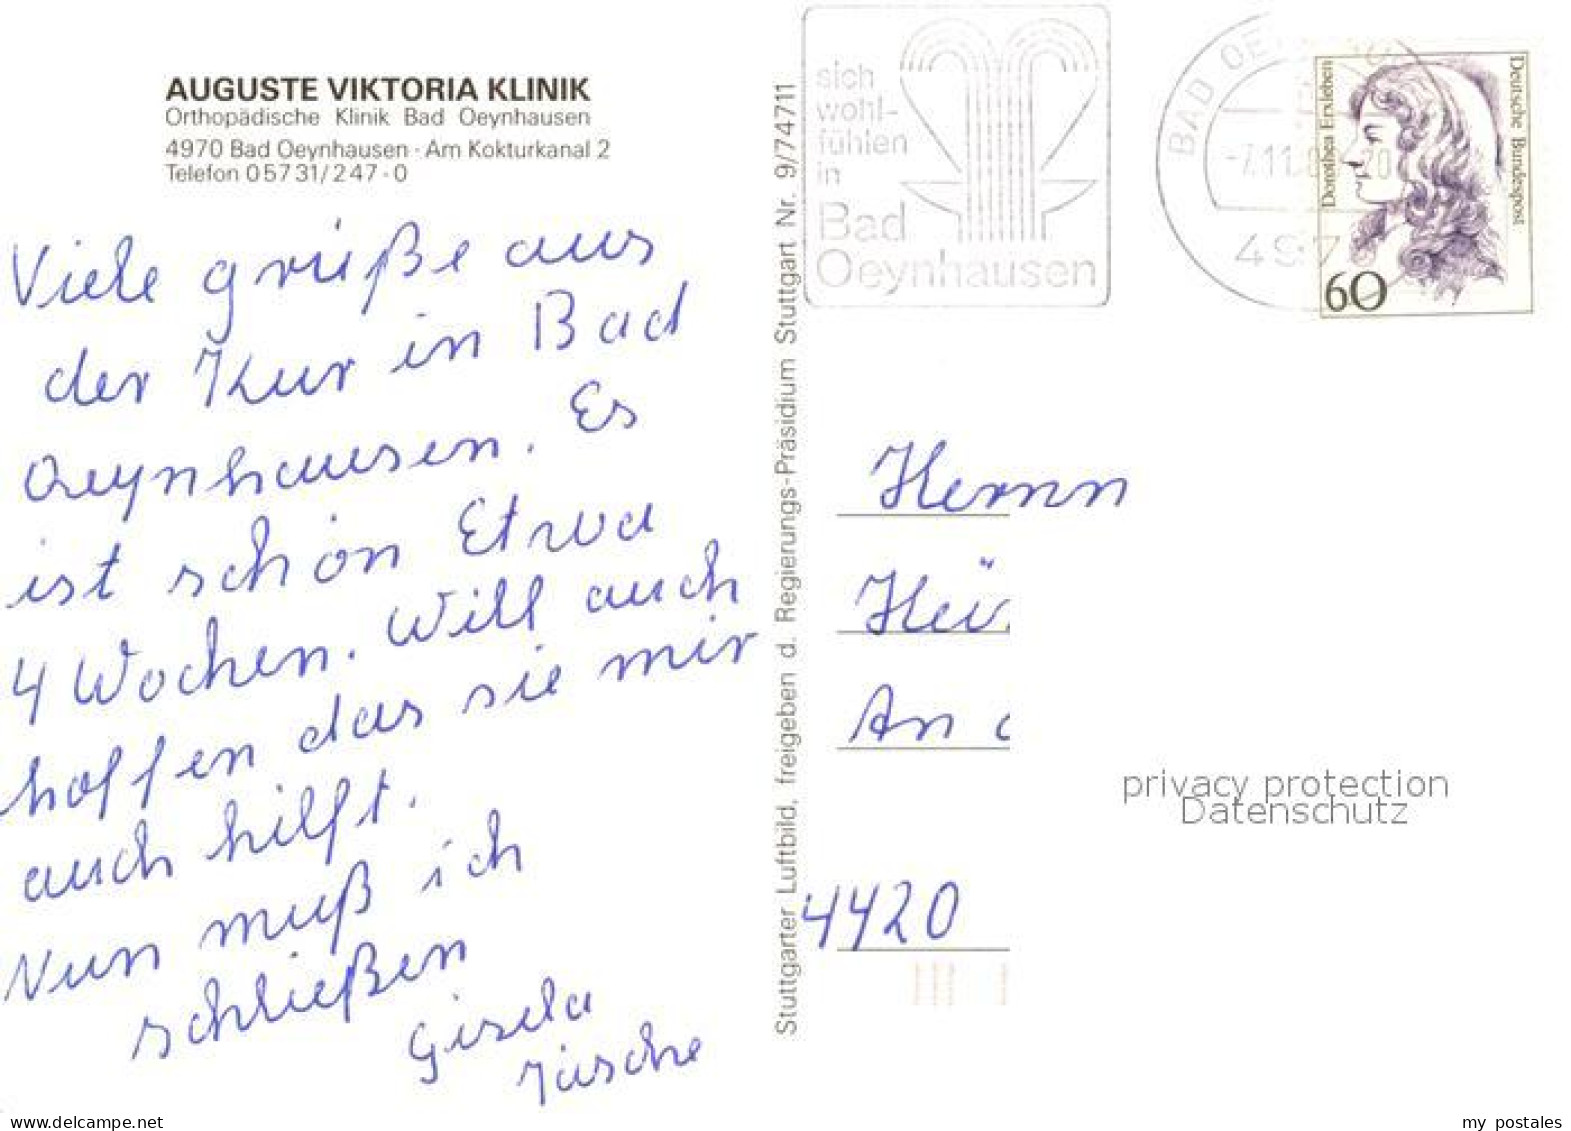 AUGUSTE VIKTORIA KLINIK
Orthopädische Klinik Bad Oeynhausen
4970 Bad Oeynhausen · Am Kokturkanal 2
Telefon 05731/247-0
Viele grüße aus
der Kur in Bad
Oeynhausen. Es
ist schön Etwa
4 Wochen. Will auch
hoffen das sie mir
auch hilft.
Nun muß ich
schließen
Gisela
Stuttgarter Luftbild, freigeben d. Regierungs-Präsidium Stuttgart Nr. 9/74711
sich
wohl-
fühlen
in
Bad
Oeynhausen
BAD OE
Dorothea Erxleben
Deutsche Bundespost
60
Herrn
An
4420
privacy protection
Datenschutz
www.delcampe.net
my_postales